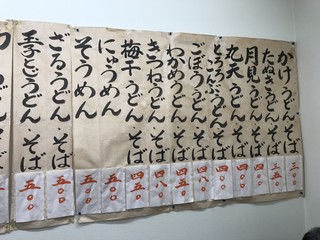 かけうどん・そば 三〇〇
たぬきうどん・そば 三五〇
月見うどん・そば 四〇〇
丸天うどん・そば 四〇〇
とろろこんぶうどん・そば 四〇〇
ごぼううどん・そば 四〇〇
わかめうどん・そば 四五〇
きつねうどん・そば 四八〇
梅干うどん・そば 四五〇
にゅうめん 五〇〇
そうめん 五〇〇
ざるうどん・そば 五〇〇
玉子とじうどん・そば 五五〇